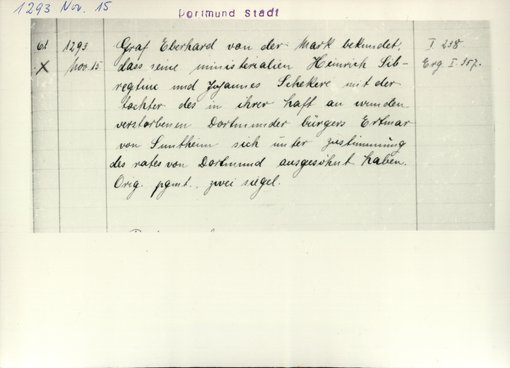 1293 Nov. 15
Dortmund Stadt
61 1293 Graf Eberhard von der Mark bekundet, I 238.
X Nov. 15 dass seine ministerialen Heinrich Erg. I 357.
und Johannes Schekere mit der
tochter des in ihrer haft an wunden
verstorbenen Dortmunder bürgers Ertmar
von Sunthem sich unter zustimmung
des rates von Dortmund ausgesöhnt haben.
Orig. pgmt. zwei siegel.